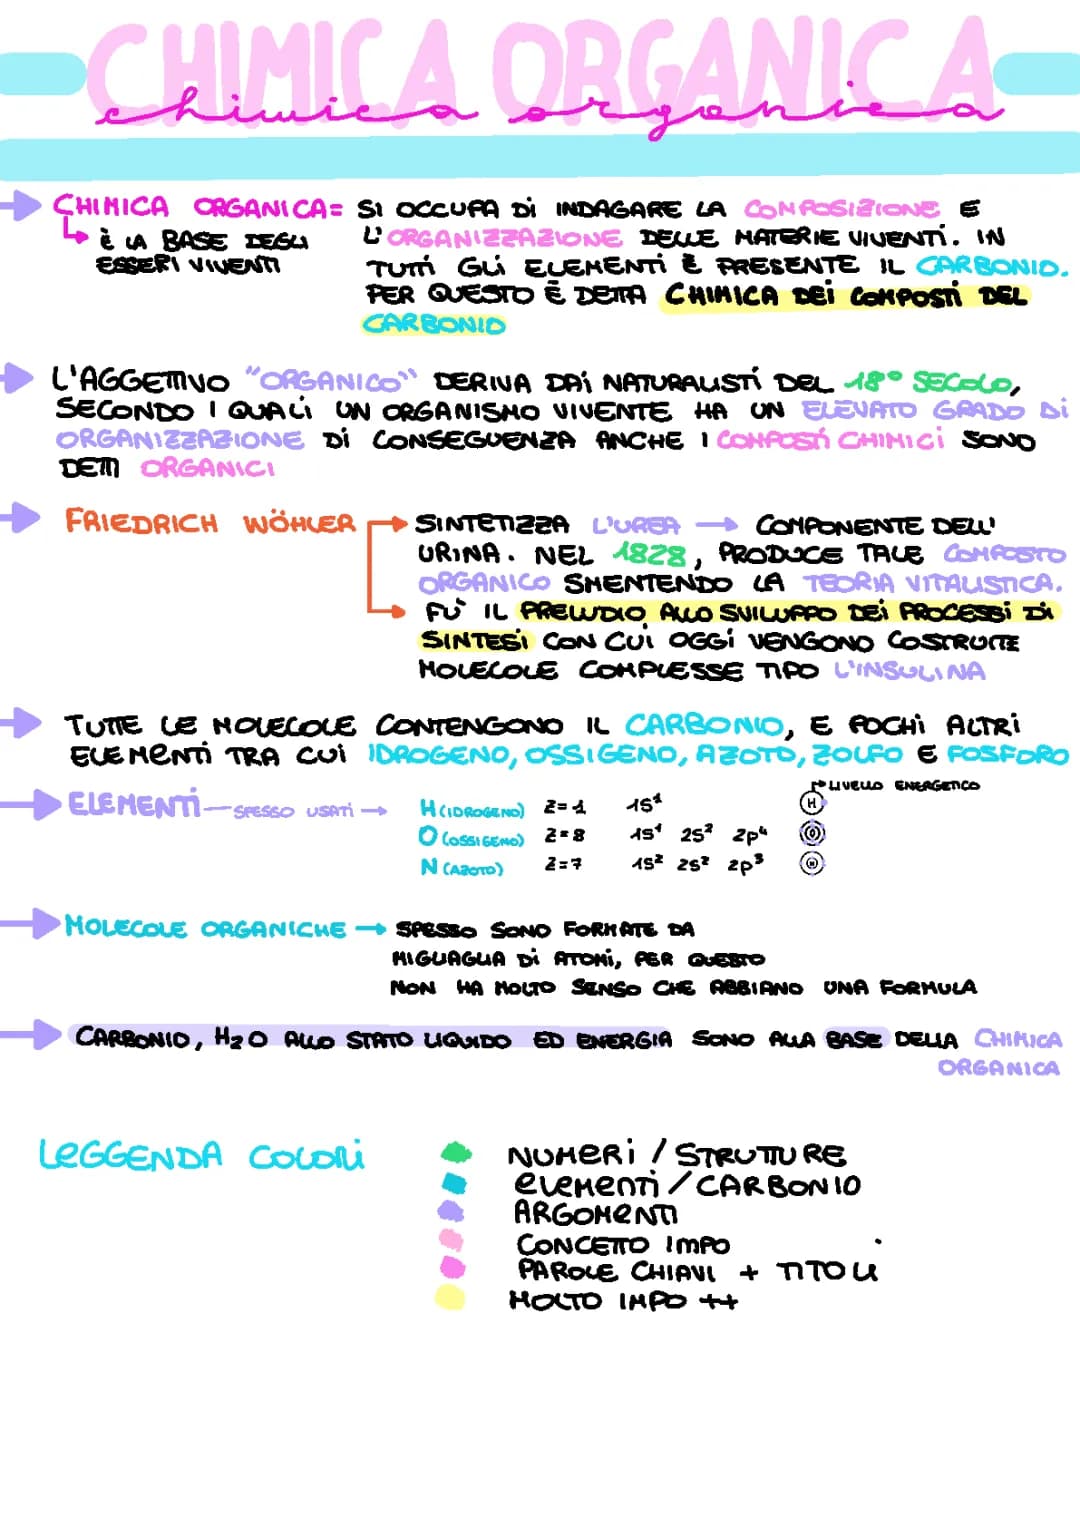 CHIMICA ORGANICA
chimica organica
CHIMICA ORGANICA= SI OCCUPA DI INDAGARE LA COMPOSIZIONE E
È LA BASE DEGLI L'ORGANIZZAZIONE DELLE MATERIE VIVENTI. IN
ESSERI VIVENTI TUTTI GLI ELEMENTI È PRESENTE IL CARBONIO.
PER QUESTO È DETTA CHIMICA DEI COMPOSTI DEL
CARBONIO
L'AGGETTIVO "ORGANICO" DERIVA DAI NATURALISTI DEL 18° SECOLO,
SECONDO I QUALI UN ORGANISMO VIVENTE HA UN ELEVATO GRADO DI
ORGANIZZAZIONE DI CONSEGUENZA ANCHE I COMPOSTI CHIMICI SONO
DETTI ORGANICI
FRIEDRICH WÖHLER → SINTETIZZA L'UREA → COMPONENTE DELL'
URINA. NEL 1828, PRODUCE TALE COMPOSTO
ORGANICO SMENTENDO LA TEORIA VITALISTICA.
FU' IL PRELUDIO ALLO SVILUPPO DEI PROCESSI DI
SINTESI CON CUI OGGI VENGONO COSTRUITE
MOLECOLE COMPLESSE TIPO L'INSULINA
TUTTE LE MOLECOLE CONTENGONO IL CARBONIO, E POCHI ALTRI
ELEMENTI TRA CUI IDROGENO, OSSIGENO, AZOTO, ZOLFO E FOSFORO
LIVELLO ENERGETICO
ELEMENTI — SPESSO USATI → H (IDROGENO) Z=1 1S¹ H
O (OSSIGENO) Z=8 1S¹ 2S² 2p⁴ O
N (AZOTO) Z=7 1S² 2S² 2p³ N
MOLECOLE ORGANICHE → SPESSO SONO FORMATE DA
MIGLIAGLIA DI ATOMI, PER QUESTO
NON HA MOLTO SENSO CHE ABBIANO UNA FORMULA
CARBONIO, H₂O ALLO STATO LIQUIDO ED ENERGIA SONO ALLA BASE DELLA CHIMICA
ORGANICA
LEGGENDA COLORI
NUMERI / STRUTTURE
ELEMENTI / CARBONIO
ARGOMENTI
CONCETTO IMPO
PAROLE CHIAVI + TITOLI
MOLTO IMPO ++